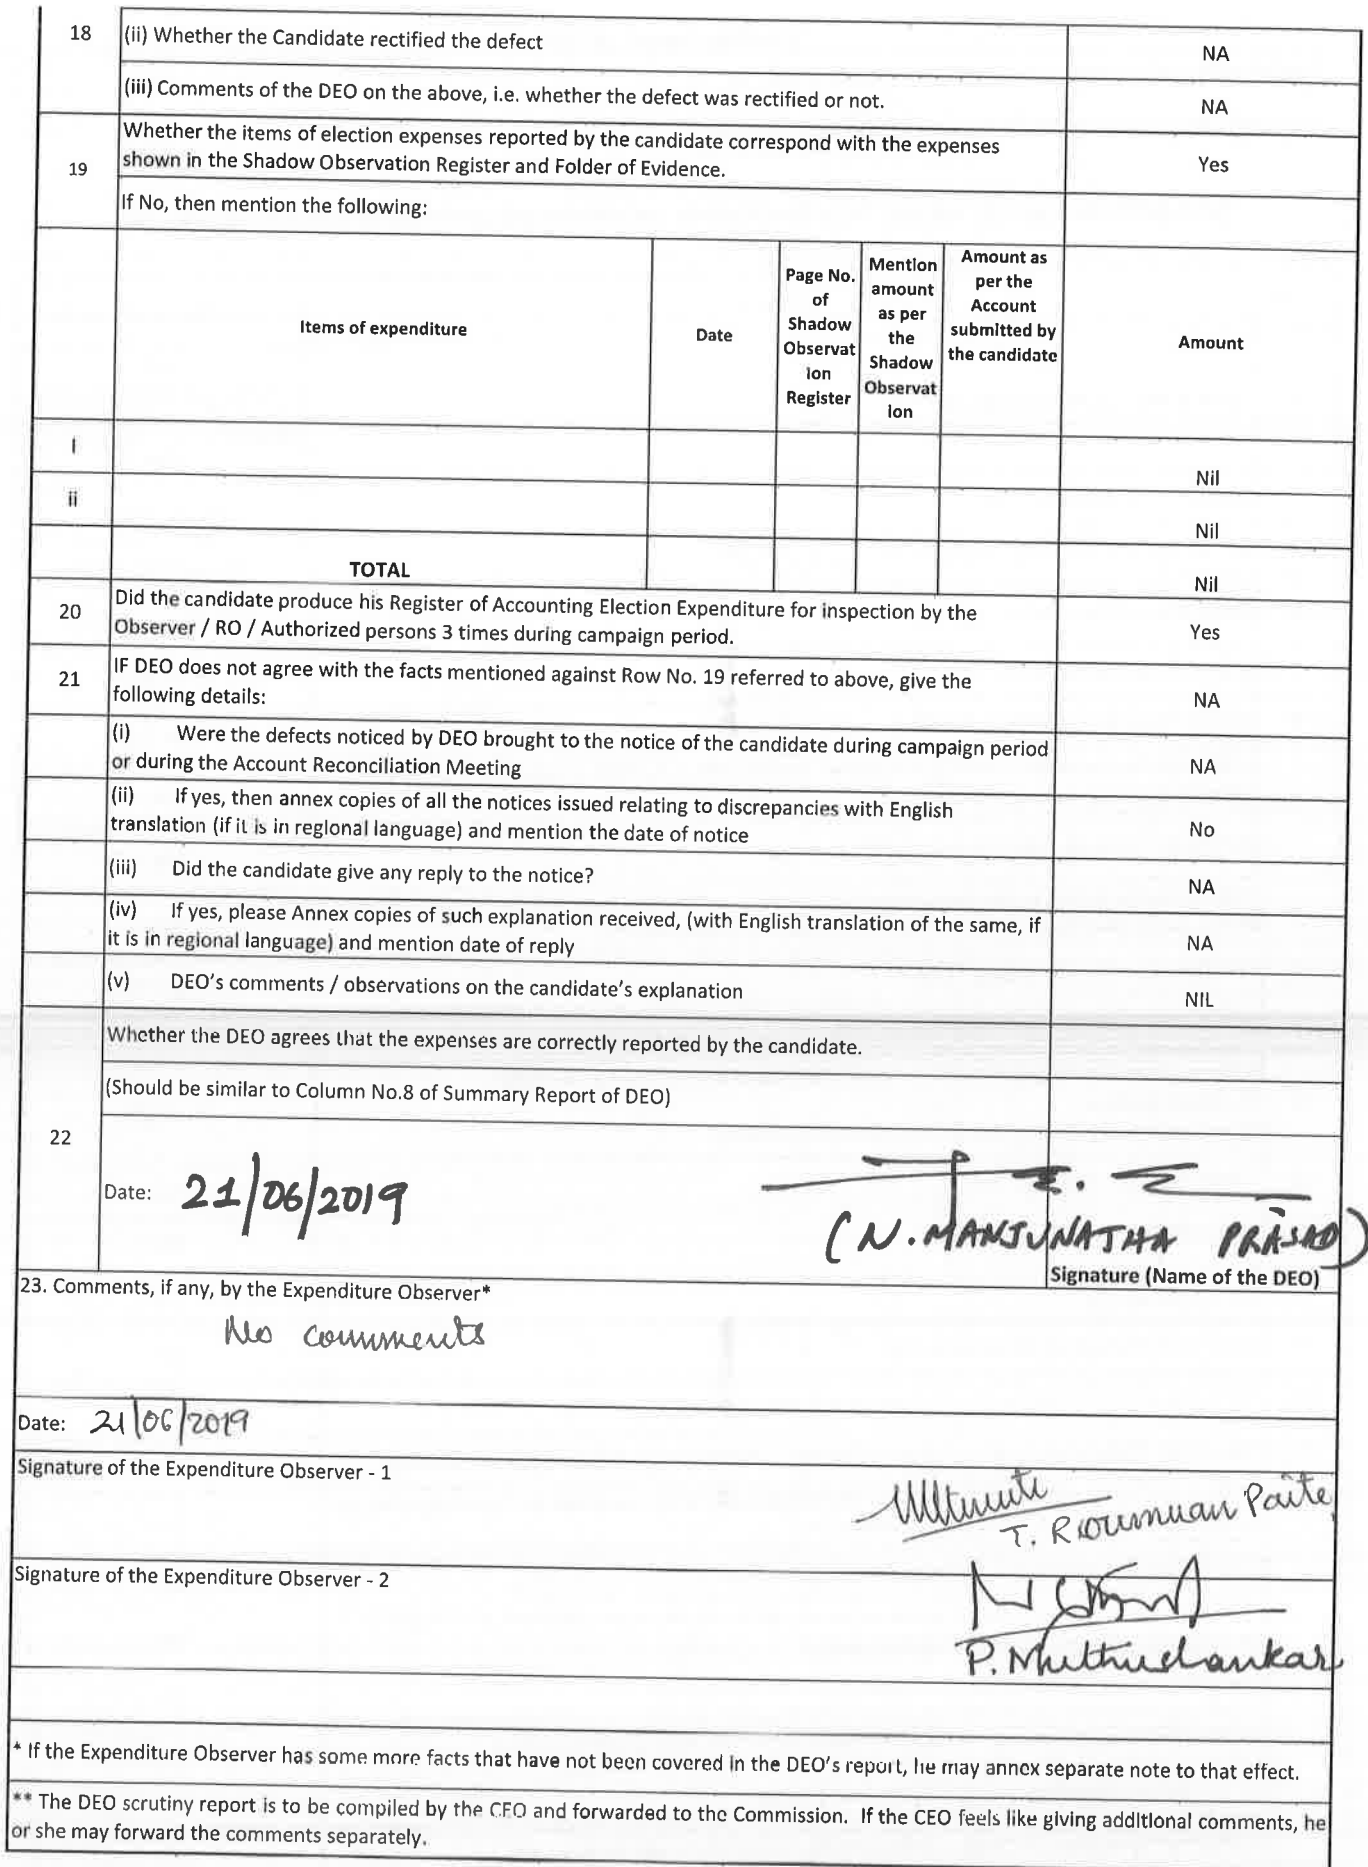 18
(ii) Whether the Candidate rectified the defect
NA
(iii) Comments of the DEO on the above, i.e. whether the defect was rectified or not.
NA
19
Whether the items of election expenses reported by the candidate correspond with the expenses
shown in the Shadow Observation Register and Folder of Evidence.
Yes
If No, then mention the following:
Items of expenditure
Date
Page No.
of
Shadow
Observat
ion
Register
Mention
amount
as per
the
Shadow
Observat
ion
Amount as
per the
Account
submitted by
the candidate
Amount
i
Nil
ii
Nil
TOTAL
Nil
20
Did the candidate produce his Register of Accounting Election Expenditure for inspection by the
Observer / RO / Authorized persons 3 times during campaign period.
Yes
21
IF DEO does not agree with the facts mentioned against Row No. 19 referred to above, give the
following details:
NA
(i) Were the defects noticed by DEO brought to the notice of the candidate during campaign period
or during the Account Reconciliation Meeting
NA
(ii) If yes, then annex copies of all the notices issued relating to discrepancies with English
translation (if it is in regional language) and mention the date of notice
No
(iii) Did the candidate give any reply to the notice?
NA
(iv) If yes, please Annex copies of such explanation received, (with English translation of the same, if
it is in regional language) and mention date of reply
NA
(v) DEO's comments / observations on the candidate's explanation
NIL
22
Whether the DEO agrees that the expenses are correctly reported by the candidate.
(Should be similar to Column No.8 of Summary Report of DEO)
Date: 21/06/2019
(N. MANJUNATHA PRASAD)
Signature (Name of the DEO)
23. Comments, if any, by the Expenditure Observer*
No comments
Date: 21/06/2019
Signature of the Expenditure Observer - 1
T. Roumuan Paite
Signature of the Expenditure Observer - 2
P. Muthushankar
* If the Expenditure Observer has some more facts that have not been covered in the DEO's report, he may annex separate note to that effect.
** The DEO scrutiny report is to be compiled by the CEO and forwarded to the Commission. If the CEO feels like giving additional comments, he
or she may forward the comments separately.